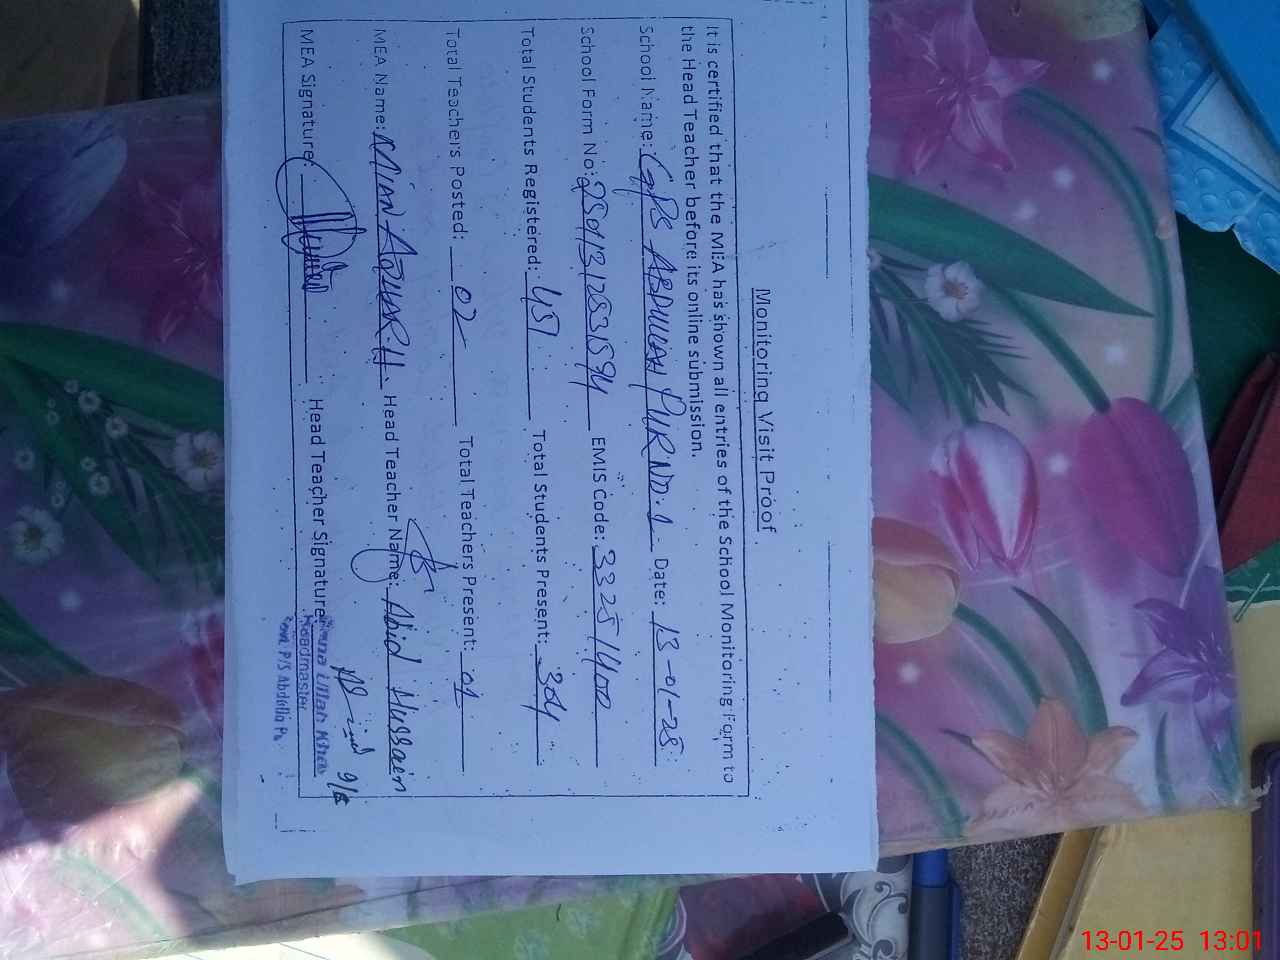 Monitoring Visit Proof
It is certified that the MEA has shown all entries of the School Monitoring Form to
the Head Teacher before its online submission.
School Name: GPS ABDULLAH PUR NO. 1 Date: 13-01-25
School Form No: 2501131283594 EMIS Code: 33251400
Total Students Registered: 451 Total Students Present: 304
Total Teachers Posted: 02 Total Teachers Present: 02
MEA Name: MIAN AZHAR H. Head Teacher Name: Abid Hussain
MEA Signature: Head Teacher Signature
Headmaster
P/S Abdulla Pu
13-01-25 13:01